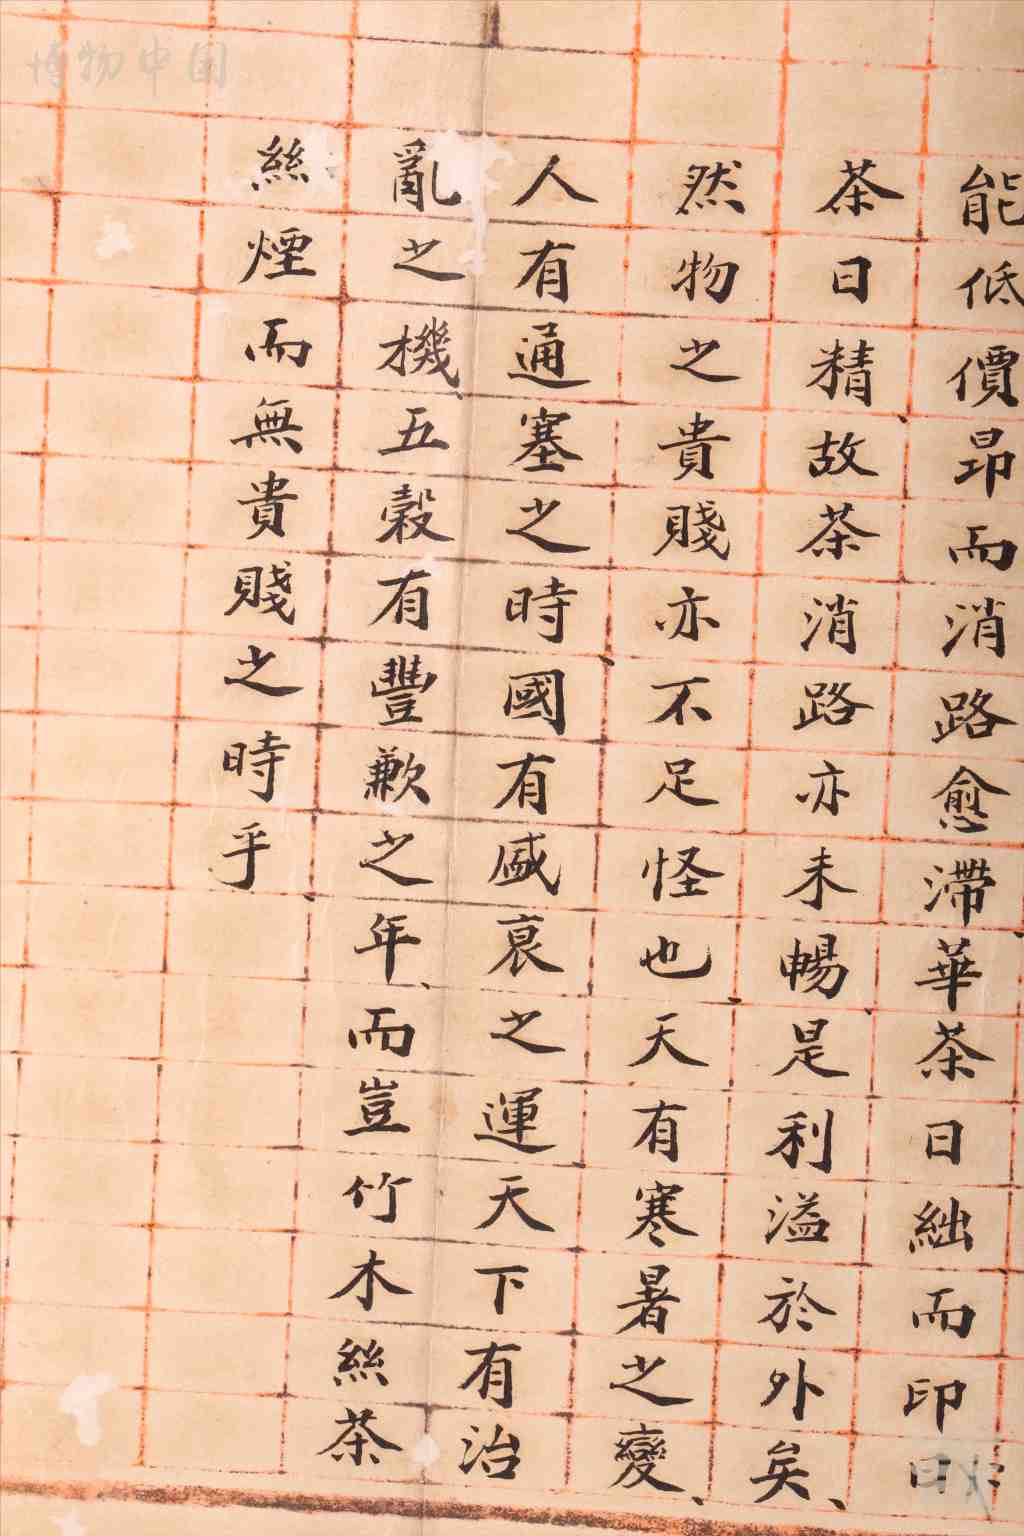 博物中国
能低價昂而消路愈滯華茶日絀而印日
茶日精故茶消路亦未暢是利溢於外矣、
然物之貴賤亦不足怪也天有寒暑之變、
人有通塞之時國有盛衰之運天下有治
亂之機、五穀有豐歉之年、而豈竹木絲茶
絲煙而無貴賤之時乎